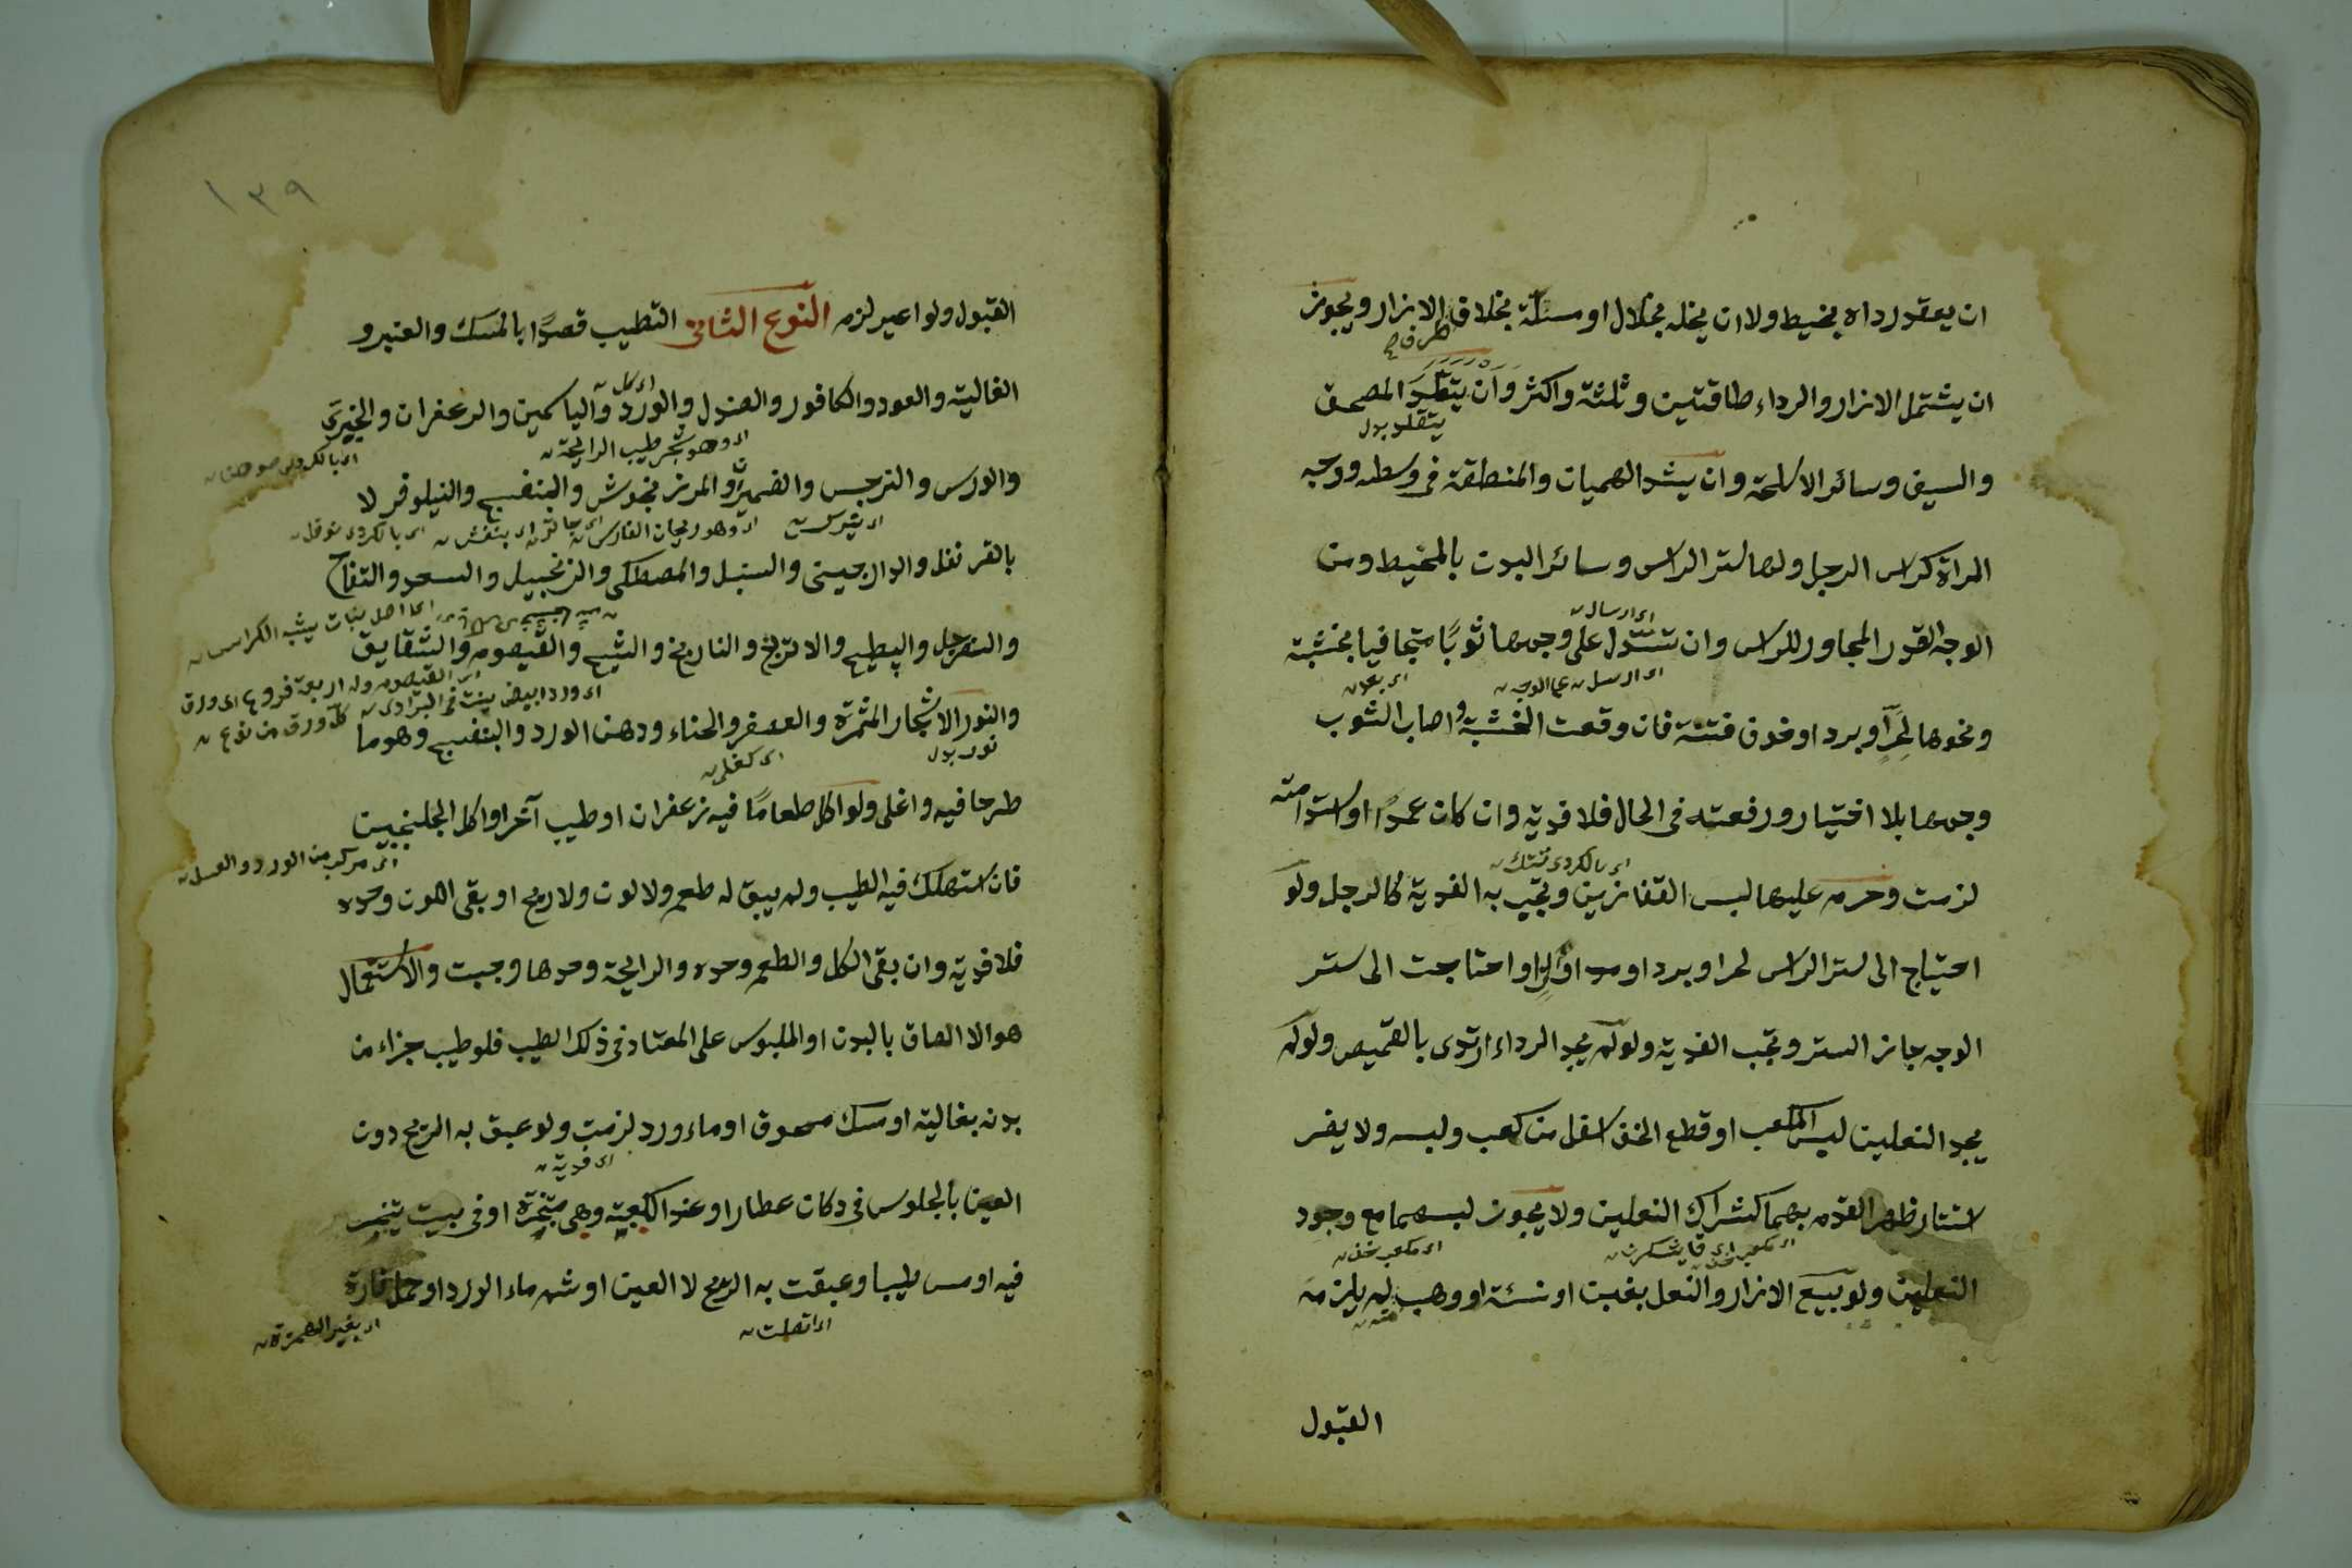 ان يعقد رداه بخيط ولا ان يخله بخلال او مسلة بخلاف الازار ويجوز
طرفاه
ان يشتمل الازار والرداء طاقتين وثلثة واكثر وان يتقلد المصحف
يتقلد بدل
والسيف وسائر الاسلحة وان يشد الهميان والمنطقة فى وسطه ووجه
المراة كراس الرجل ولها ستر الراس وسائر البدن بالمخيط ومن
الوجه القدر المجاور للراس وان تسدل على وجهها ثوبًا متجافيا بخشبة
اى ارسال
ونحوها لحرٍّ او برد او خوف فتنة فان وقعت الخشبة واصاب الثوب
اى ارسل على الوجه
وجهها بلا اختيار ورفعته فى الحال فلا فدية وان كان عمدًا او استدامته
لزمت وحرم عليها لبس القفازين وتجب به الفدية كالرجل ولو
احتياج الى ستر الراس لحر او برد او مداواة او احتاجت الى ستر
الوجه جاز الستر وتجب الفدية ولو لم يجد الرداء ارتدى بالقميص ولو لم
يجد النعلين لبس المكعب او قطع الخف اسفل من كعب ولبسه ولا يضر
استتار ظهر القدم بهما كشراك النعلين ولا يجوز لبسهما مع وجود
اى مكعب خف
النعلين ولو بيع الازار والنعل بغبن او نسئة او وهب له يلزمه
منه
القبول
١٣٩
القبول ولو اعير لزم النوع الثانى التطيب قصدًا بالمسك والعنبر و
الغالية والعود والكافور والصندل والورد والياسمين والزعفران والخيرى
اى وهو شجر طيب الرايحة
والورس والنرجس والضميران والمرزنجوش والبنفسج والنيلوفر لا
اى وهو ريحان الفارسى
بالقرنفل والدارجينى والسنبل والمصطكى والزنجبيل والسعد والتفاح
اى اصل نبات يشبه الكراس
والسفرجل والبطيح والاترنج والنارنج والشيح والقيصوم والشقايق
اى القيصوم وله اربعة فروع اى ورق
كل ورق من نوع
اى ورد ابيض ينبت فى البرادى
والنور الاشجار المثمرة والعصفر والحناء ودهن الورد والبنفسج وهو ما
نور بدل
طرحا فيه واغلى ولو اكل طعامًا فيه زعفران او طيب آخر او اكل الجلنجبين
اى مركب من الورد والعسل
فان استهلك فيه الطيب ولم يبق له طعم ولا لون ولا ريح او بقى اللون وحده
فلا فدية وان بقى الكل والطعم وحده والرايحة وحدها وجبت والاستعمال
هو الا الصاق بالبدن او الملبوس على المعتاد فى ذلك الطيب فلو طيب جزاء من
بدنه بغالية او مسك مسحوق او ماء ورد لزمت ولو عبق به الريح دون
اى فدية
العين بالجلوس فى دكان عطار او عند الكعبة وهى متبخرة او فى بيت يتبخر
فيه او مس طيبا وعبقت به الريح لا العين او شم ماء الورد او حمل فارة
اى اتصلت
اى بغير الهمزة